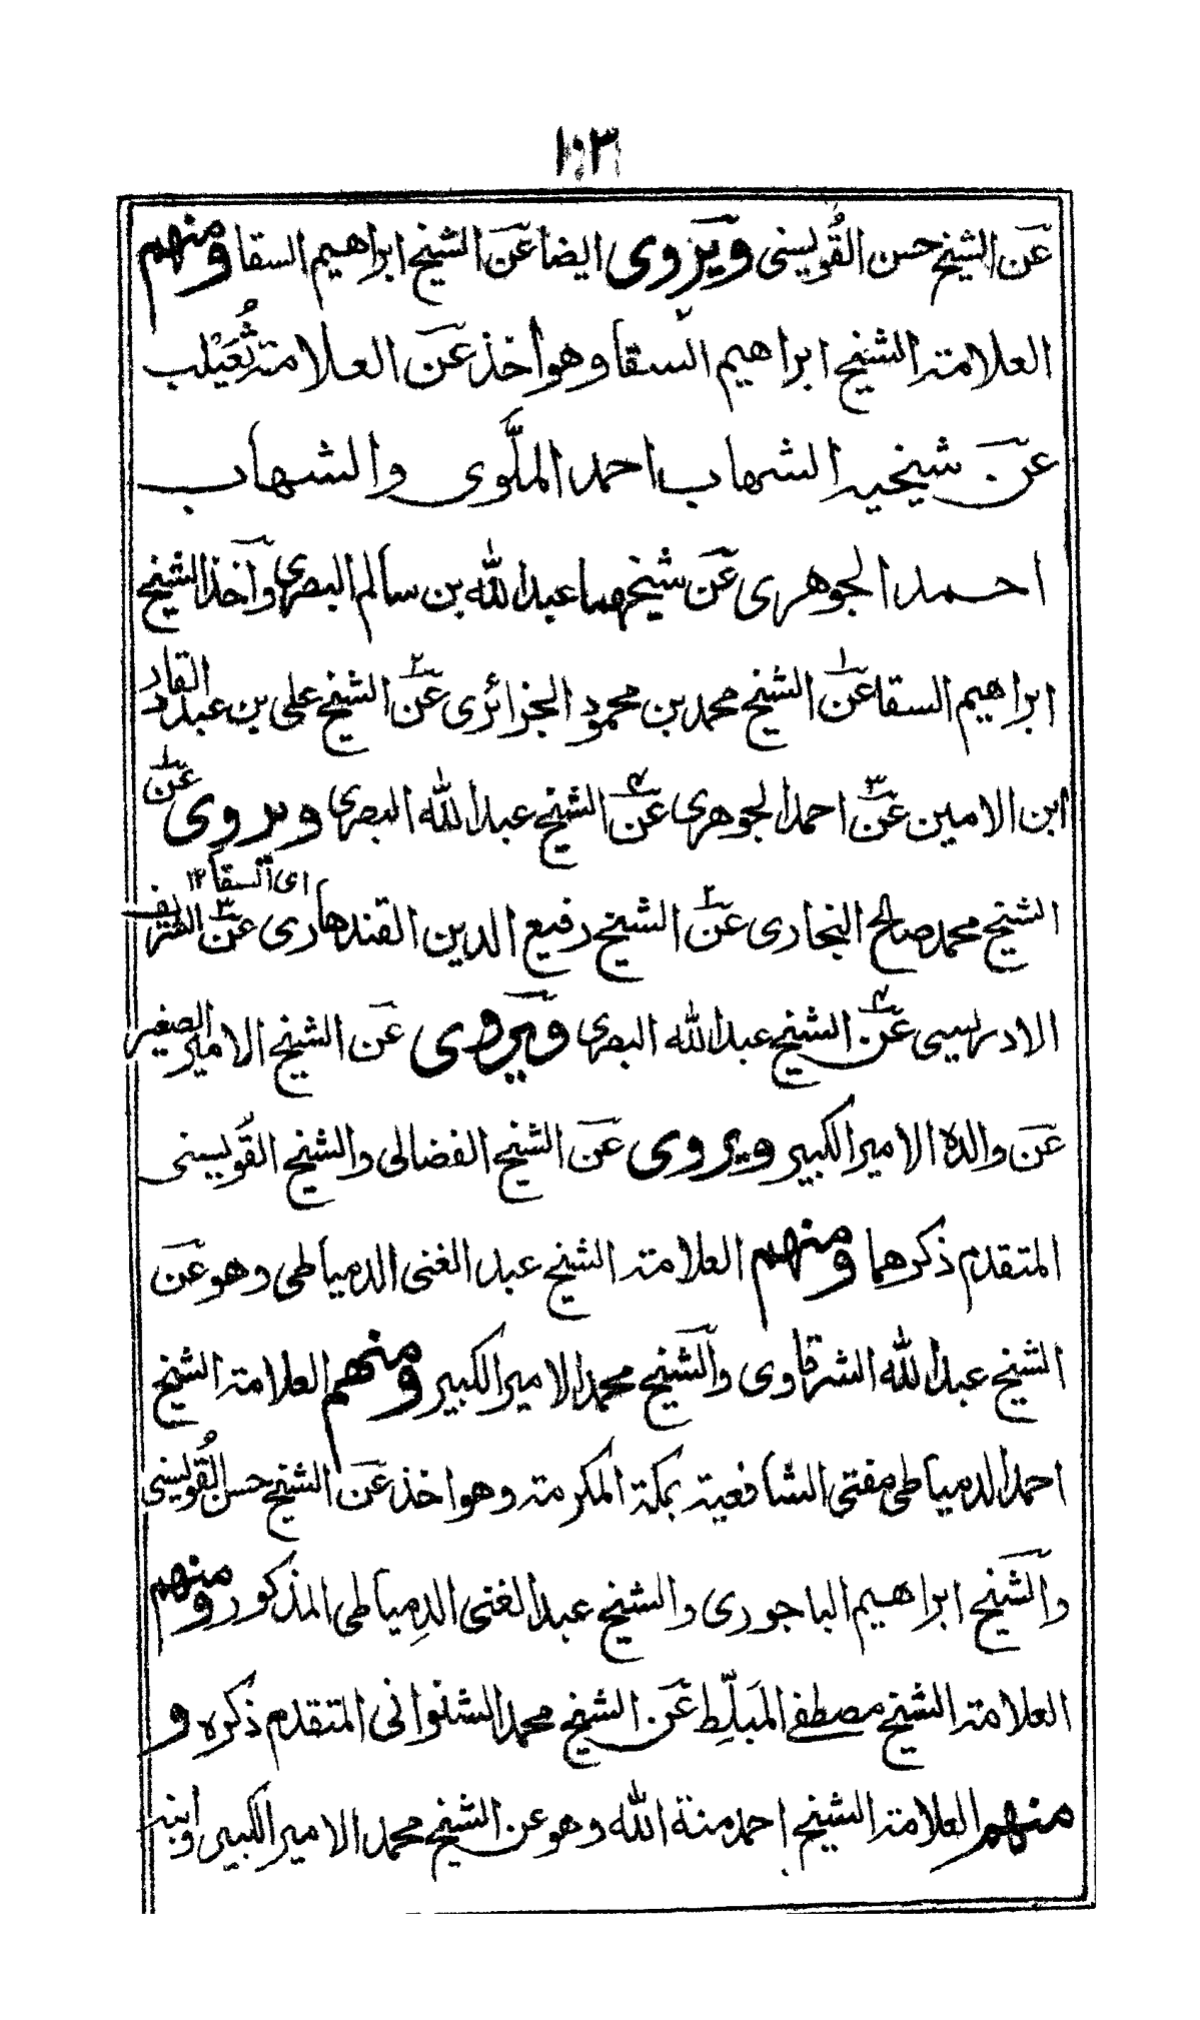 ١٠٣
عن الشيخ حسن القُويسنى ويروى ايضا عن الشيخ ابراهيم السقا ومنهم
العلامة الشيخ ابراهيم السقا وهو اخذ عن العلامة ثُعَيْلب
عن شيخيه الشهاب احمد الملَّوى والشهاب
احمد الجوهرى عن شيخهما عبد الله بن سالم البصرى واخذ الشيخ
ابراهيم السقا عن١ الشيخ محمد بن محمود الجزائرى عن٢ الشيخ على بن عبد القادر
ابن الامين عن٣ احمد الجوهرى عن٤ الشيخ عبد الله البصرى ويروى عن١
اى السقا ١٢
الشيخ محمد صالح البخارى عن٢ الشيخ رفيع الدين القندهارى عن٣ الشريف
الادريسى عن٤ الشيخ عبد الله البصرى ويروى عن الشيخ الامير الصغير
عن والده الامير الكبير ويروى عن الشيخ الفضالى والشيخ القويسنى
المتقدم ذكرهما ومنهم العلامة الشيخ عبد الغنى الدمياطى وهو عن
الشيخ عبد الله الشرقاوى والشيخ محمد الامير الكبير ومنهم العلامة الشيخ
احمد الدمياطى مفتى الشافعية بمكة المكرمة وهو اخذ عن الشيخ حسن القُويسنى
والشيخ ابراهيم الباجورى والشيخ عبد الغنى الدِمياطى المذكور ومنهم
العلامة الشيخ مصطفى المَبلِّط عن الشيخ محمد الشنوانى المتقدم ذكره و
منهم العلامة الشيخ احمد منة الله وهو عن الشيخ محمد الامير الكبير وابنه